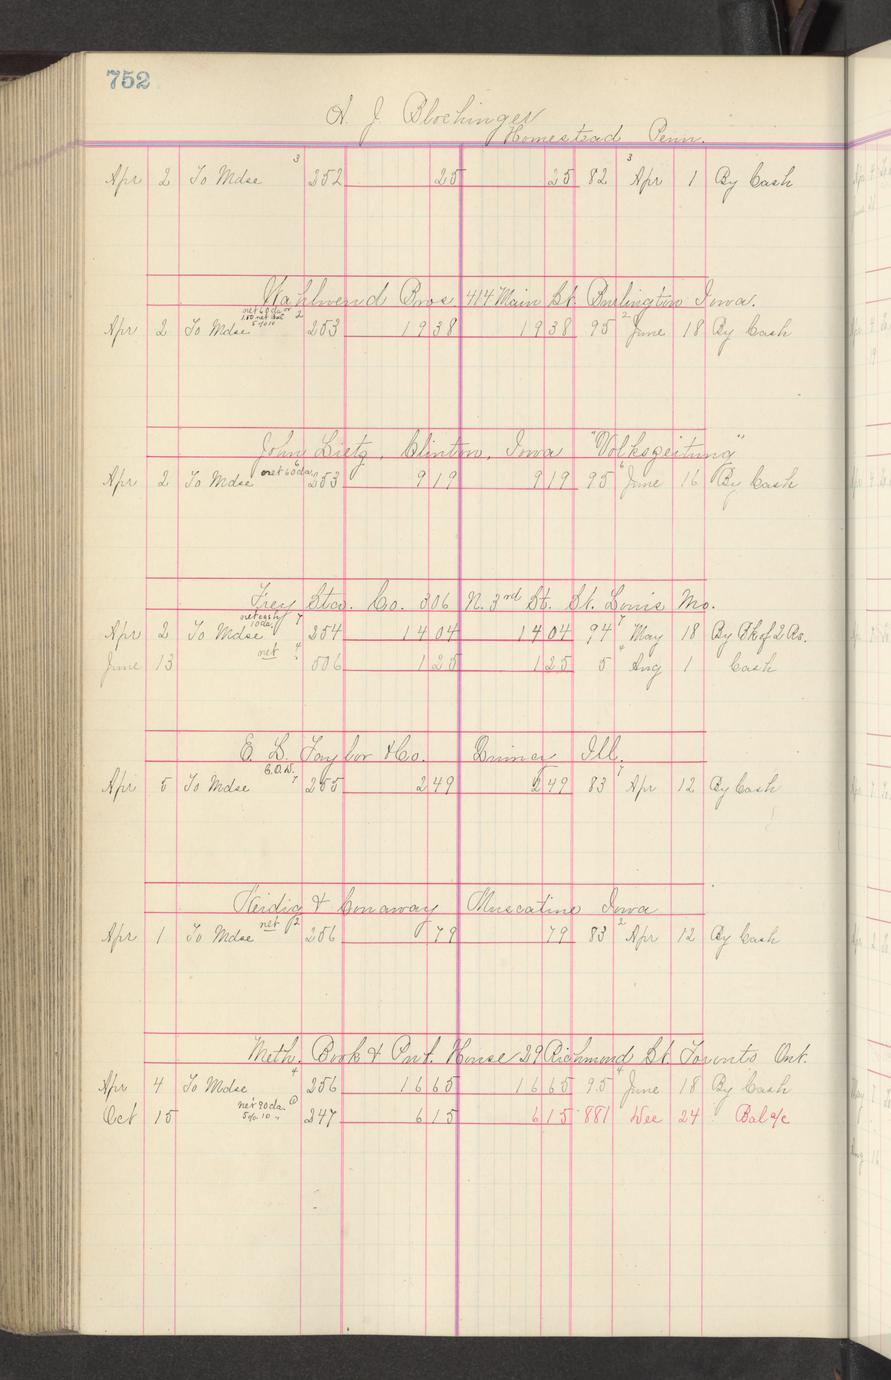 752
A. J. Blochinger
Homestead Penn.
Apr 2 To Mdse 3 252 25 25 82 3 Apr 1 By Cash
Wahlwend Bros. 414 Main St. Burlington Iowa.
net 60 da or
5% 10
Apr 2 To Mdse 2 253 1938 1938 95 2 June 18 By Cash
John Lietz, Clinton, Iowa "Volkszeitung"
Apr 2 To Mdse net 60 da. 6 253 919 919 95 6 June 16 By Cash
Frey Sta. Co. 306 N. 3rd St. St. Louis Mo.
net cash
10 da.
Apr 2 To Mdse 7 254 1404 1404 94 7 May 18 By Bk of 2 Rs.
June 13 net 4 506 125 125 5 4 Aug 1 Cash
E. L. Taylor & Co. Quincy Ill.
C.O.D.
Apr 5 To Mdse 7 255 249 249 83 7 Apr 12 By Cash
Heidig & Conaway Muscatine Iowa
Apr 1 To Mdse net 2 256 79 79 83 2 Apr 12 By Cash
Meth. Book & Pub. House 29 Richmond St. Toronto Ont.
Apr 4 To Mdse 4 256 1665 1665 95 4 June 18 By Cash
net 90 da.
5% 10 "
Oct 15 247 615 615 881 Dec 24 Bal a/c